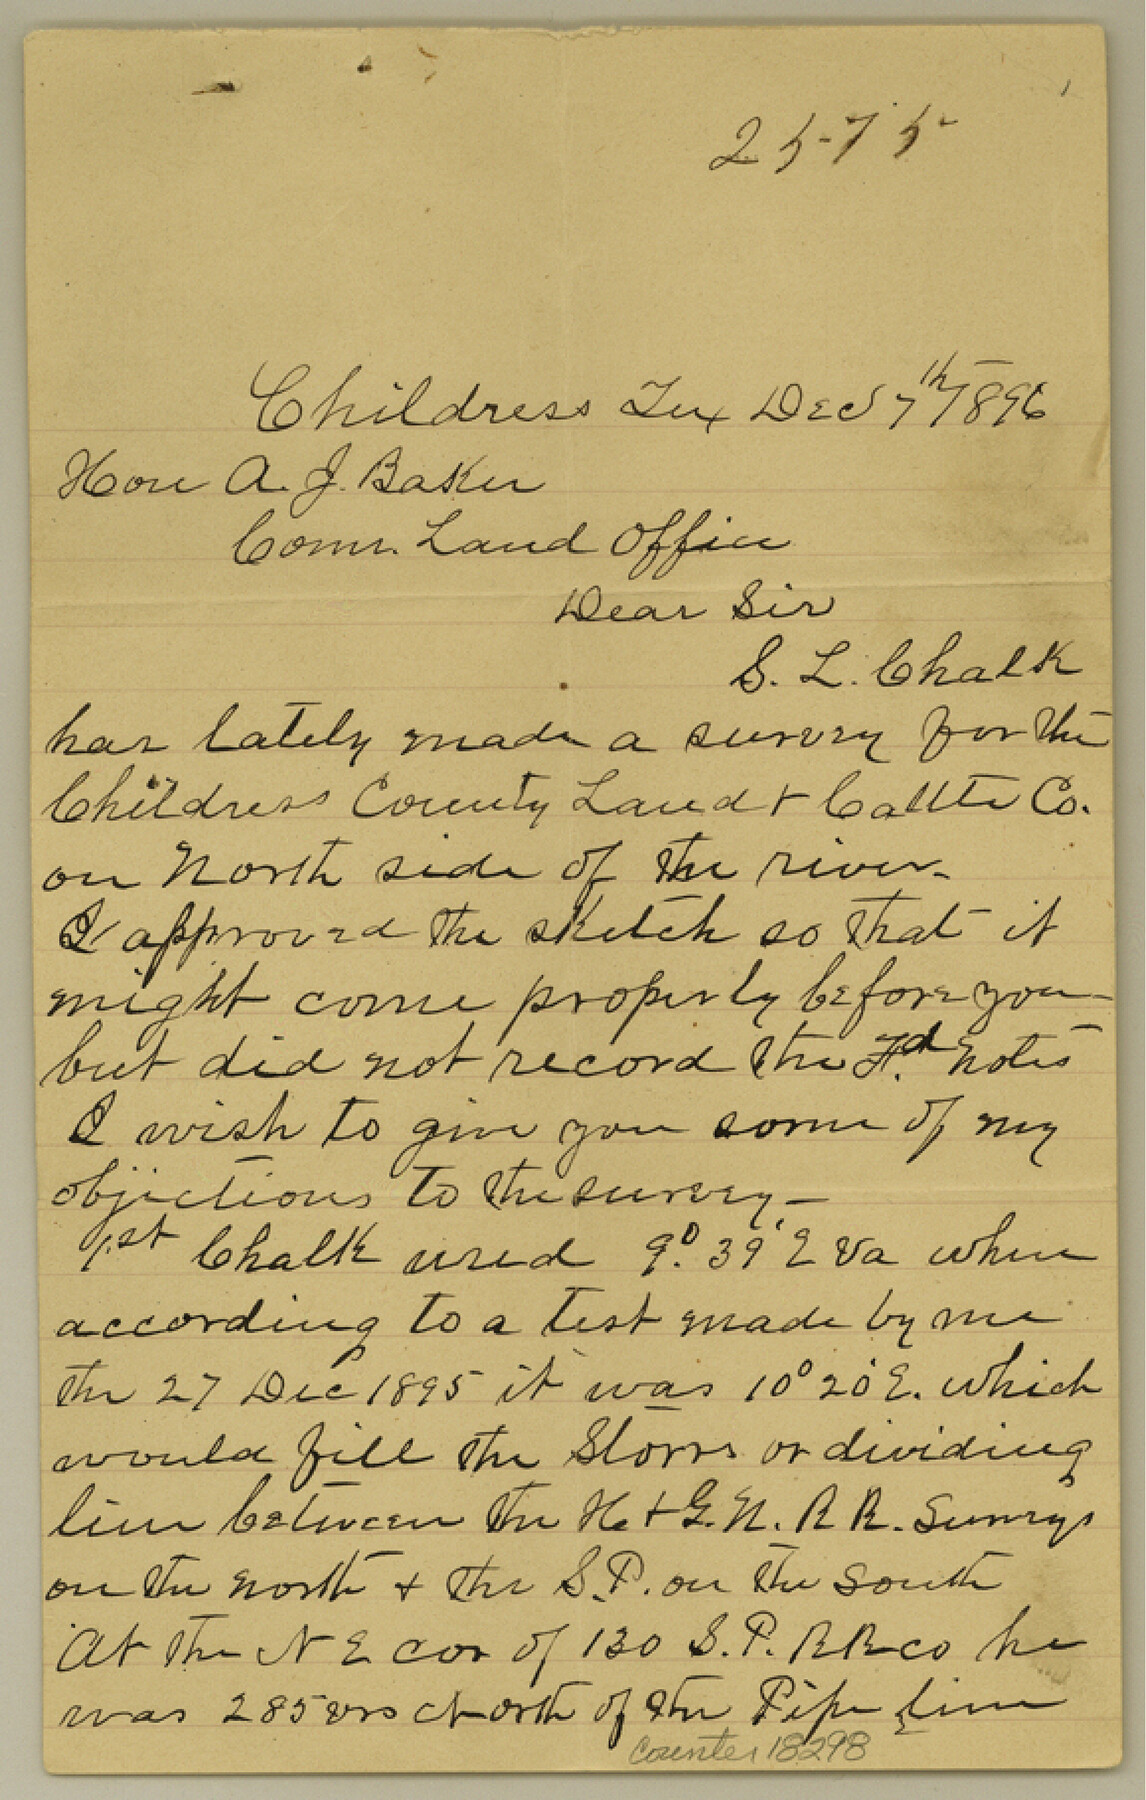 25-75
Childress Tex Dec 7th 1896
Hon A. J. Baker
Comr. Land Office
Dear Sir
S. L. Chalk
has lately made a survey for the
Childress County Land & Cattle Co.
on North side of the river.
I approved the sketch so that it
might come properly before you -
but did not record the F.d Notes
I wish to give you some of my
objections to the survey -
1st Chalk used 9° 39' E Va when
according to a test made by me
the 27 Dec 1895 it was 10° 20' E. which
would fill the Storrs or dividing
line between the H & G. N. R R. Surveys
on the north & the S. P. on the South
At the N E cor of 130 S. P. RR co he
was 285 vrs North of the Pipe line
counter 18298